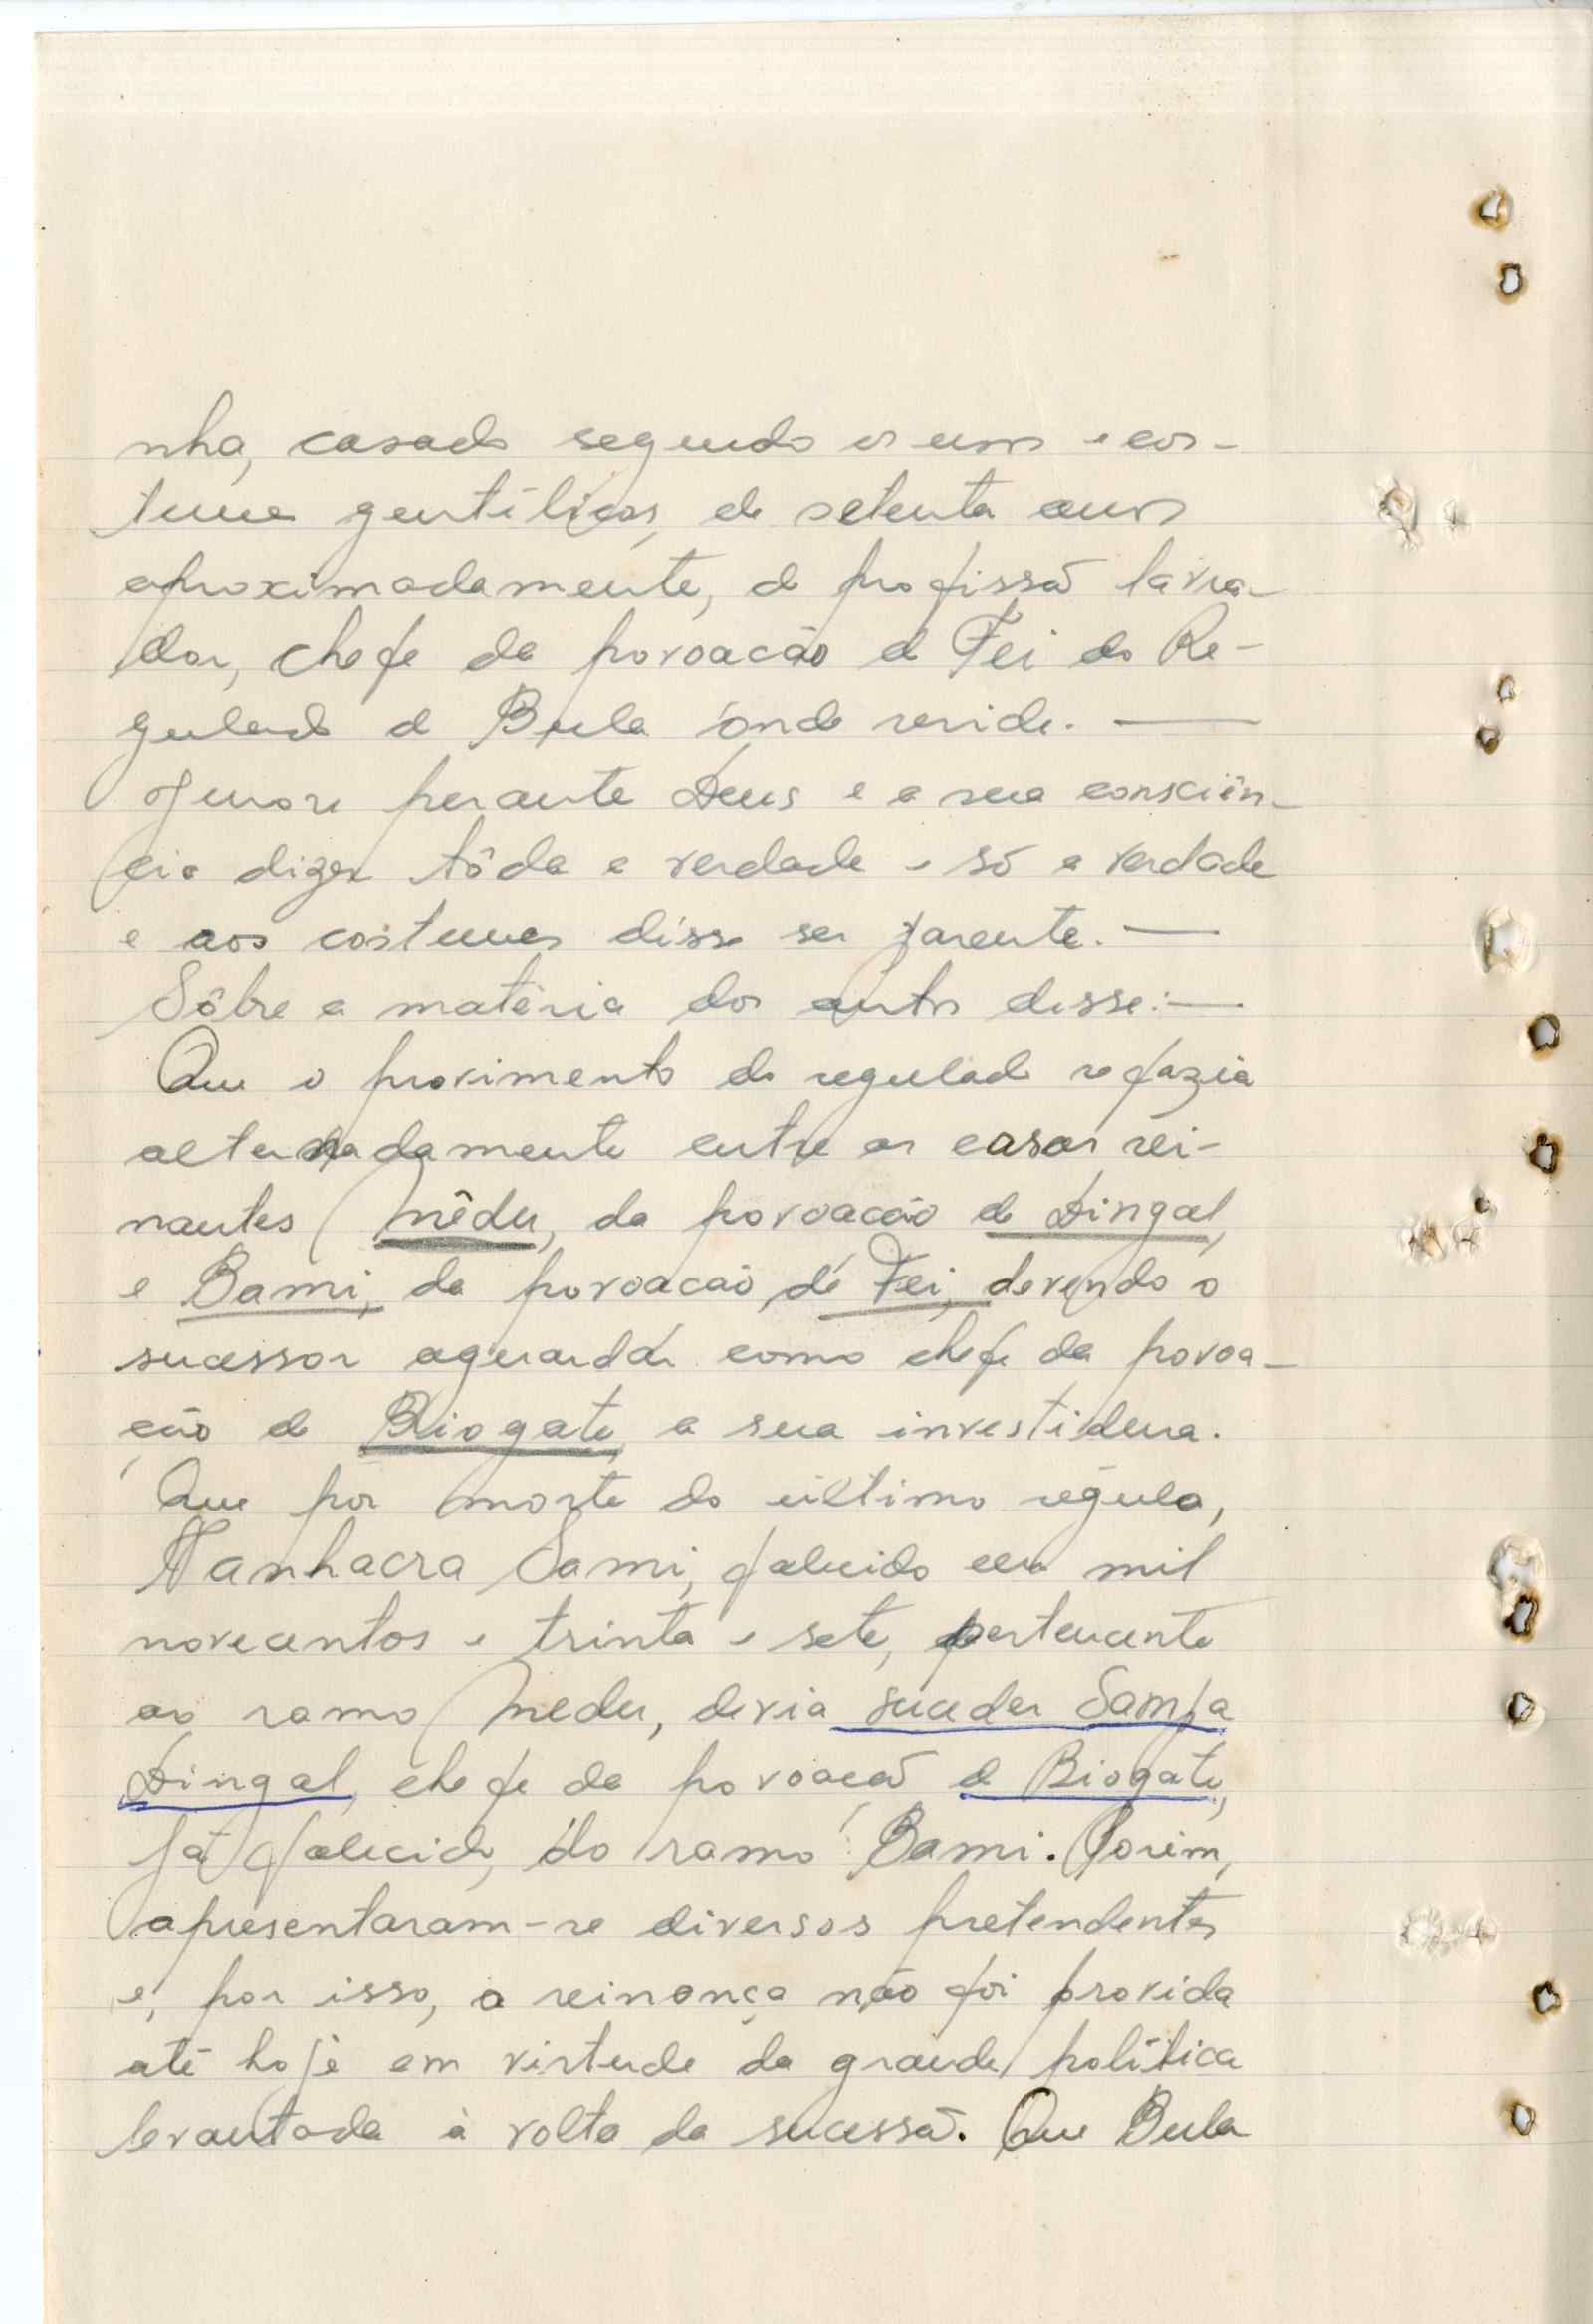 nha, casado segundo os usos e cos-
tumes gentílicos, de setenta anos
aproximadamente, de profissão lavra-
dor, chefe da povoação de Fei do Re-
gulado de Bula onde reside. —
Jurou perante Deus e a sua consciên-
cia dizer tôda a verdade e só a verdade
e aos costumes disse ser parente. —
Sôbre a matéria dos autos disse: —
Que o provimento do regulado se fazia
alternadamente entre as casas rei-
nantes Mêdu, da povoação de Dingal,
e Bami, da povoação de Fei, devendo o
sucessor aguardar como chefe da povoa-
ção de Biogate a sua investidura.
Que por morte do último régulo,
Nanhacra Sami, falecido em mil
novecentos e trinta e sete, pertencente
ao ramo Medu, devia suceder Sampa
Dingal, chefe da povoação de Biogate,
já falecido, do ramo Bami. Porém,
apresentaram-se diversos pretendentes
e, por isso, a reinança não foi provida
até hoje em virtude da grande política
levantada à volta da sucessão. Que Bula